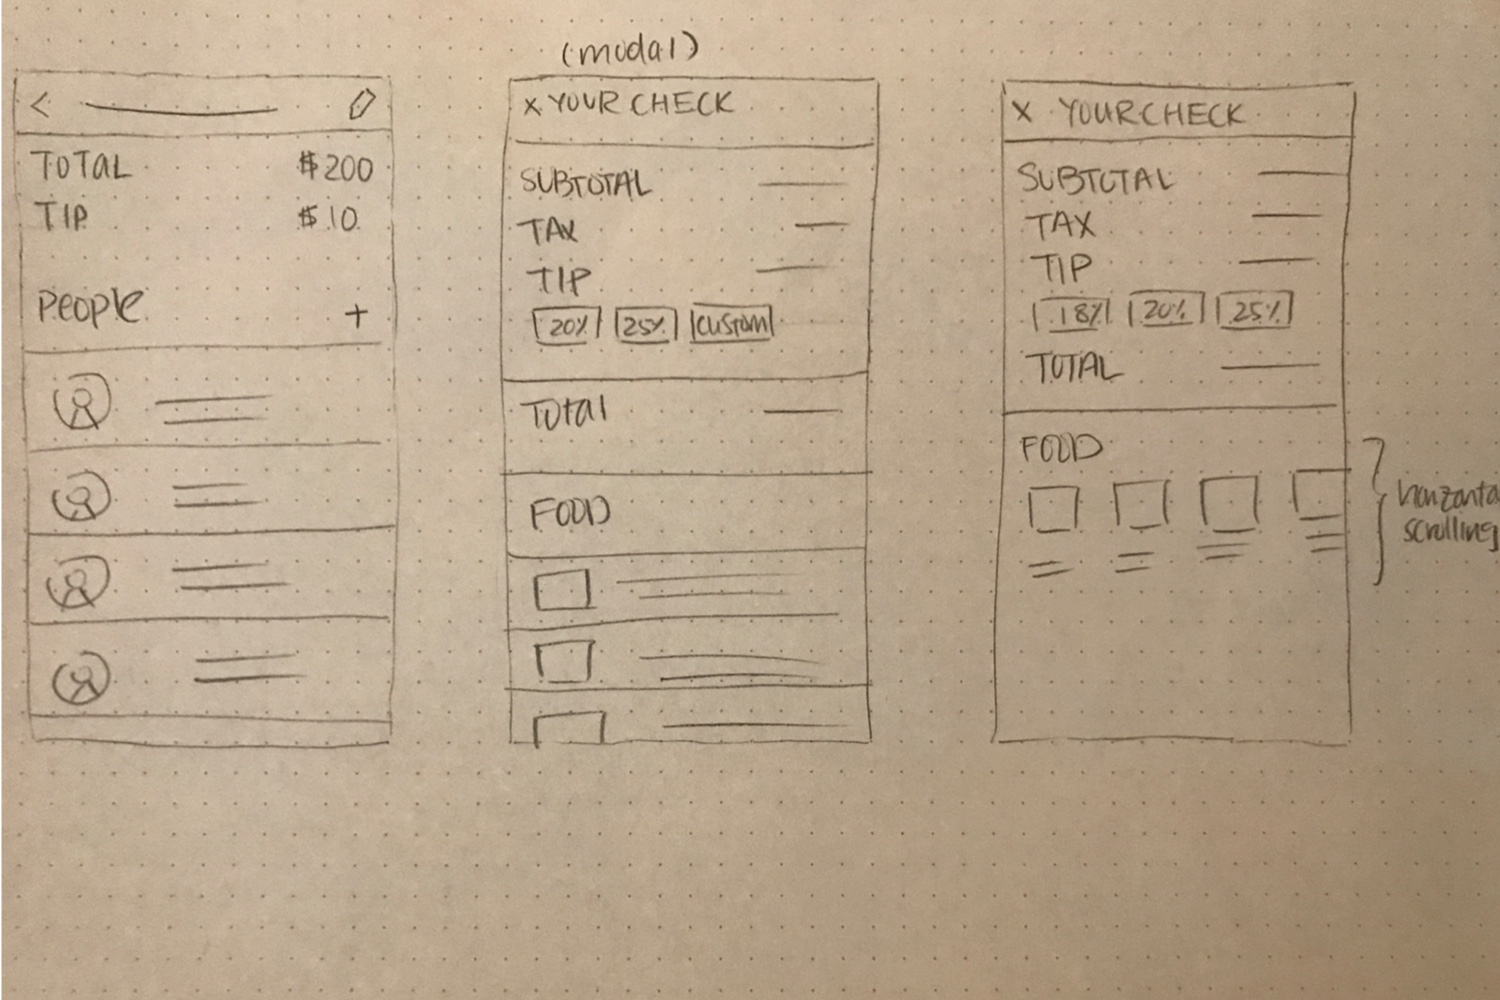 TOTAL $200
TIP $10
People +
(modal)
X YOUR CHECK
SUBTOTAL
TAX
TIP
20% 25% CUSTOM
Total
FOOD
X YOUR CHECK
SUBTOTAL
TAX
TIP
18% 20% 25%
TOTAL
FOOD
horizonta
scrolling